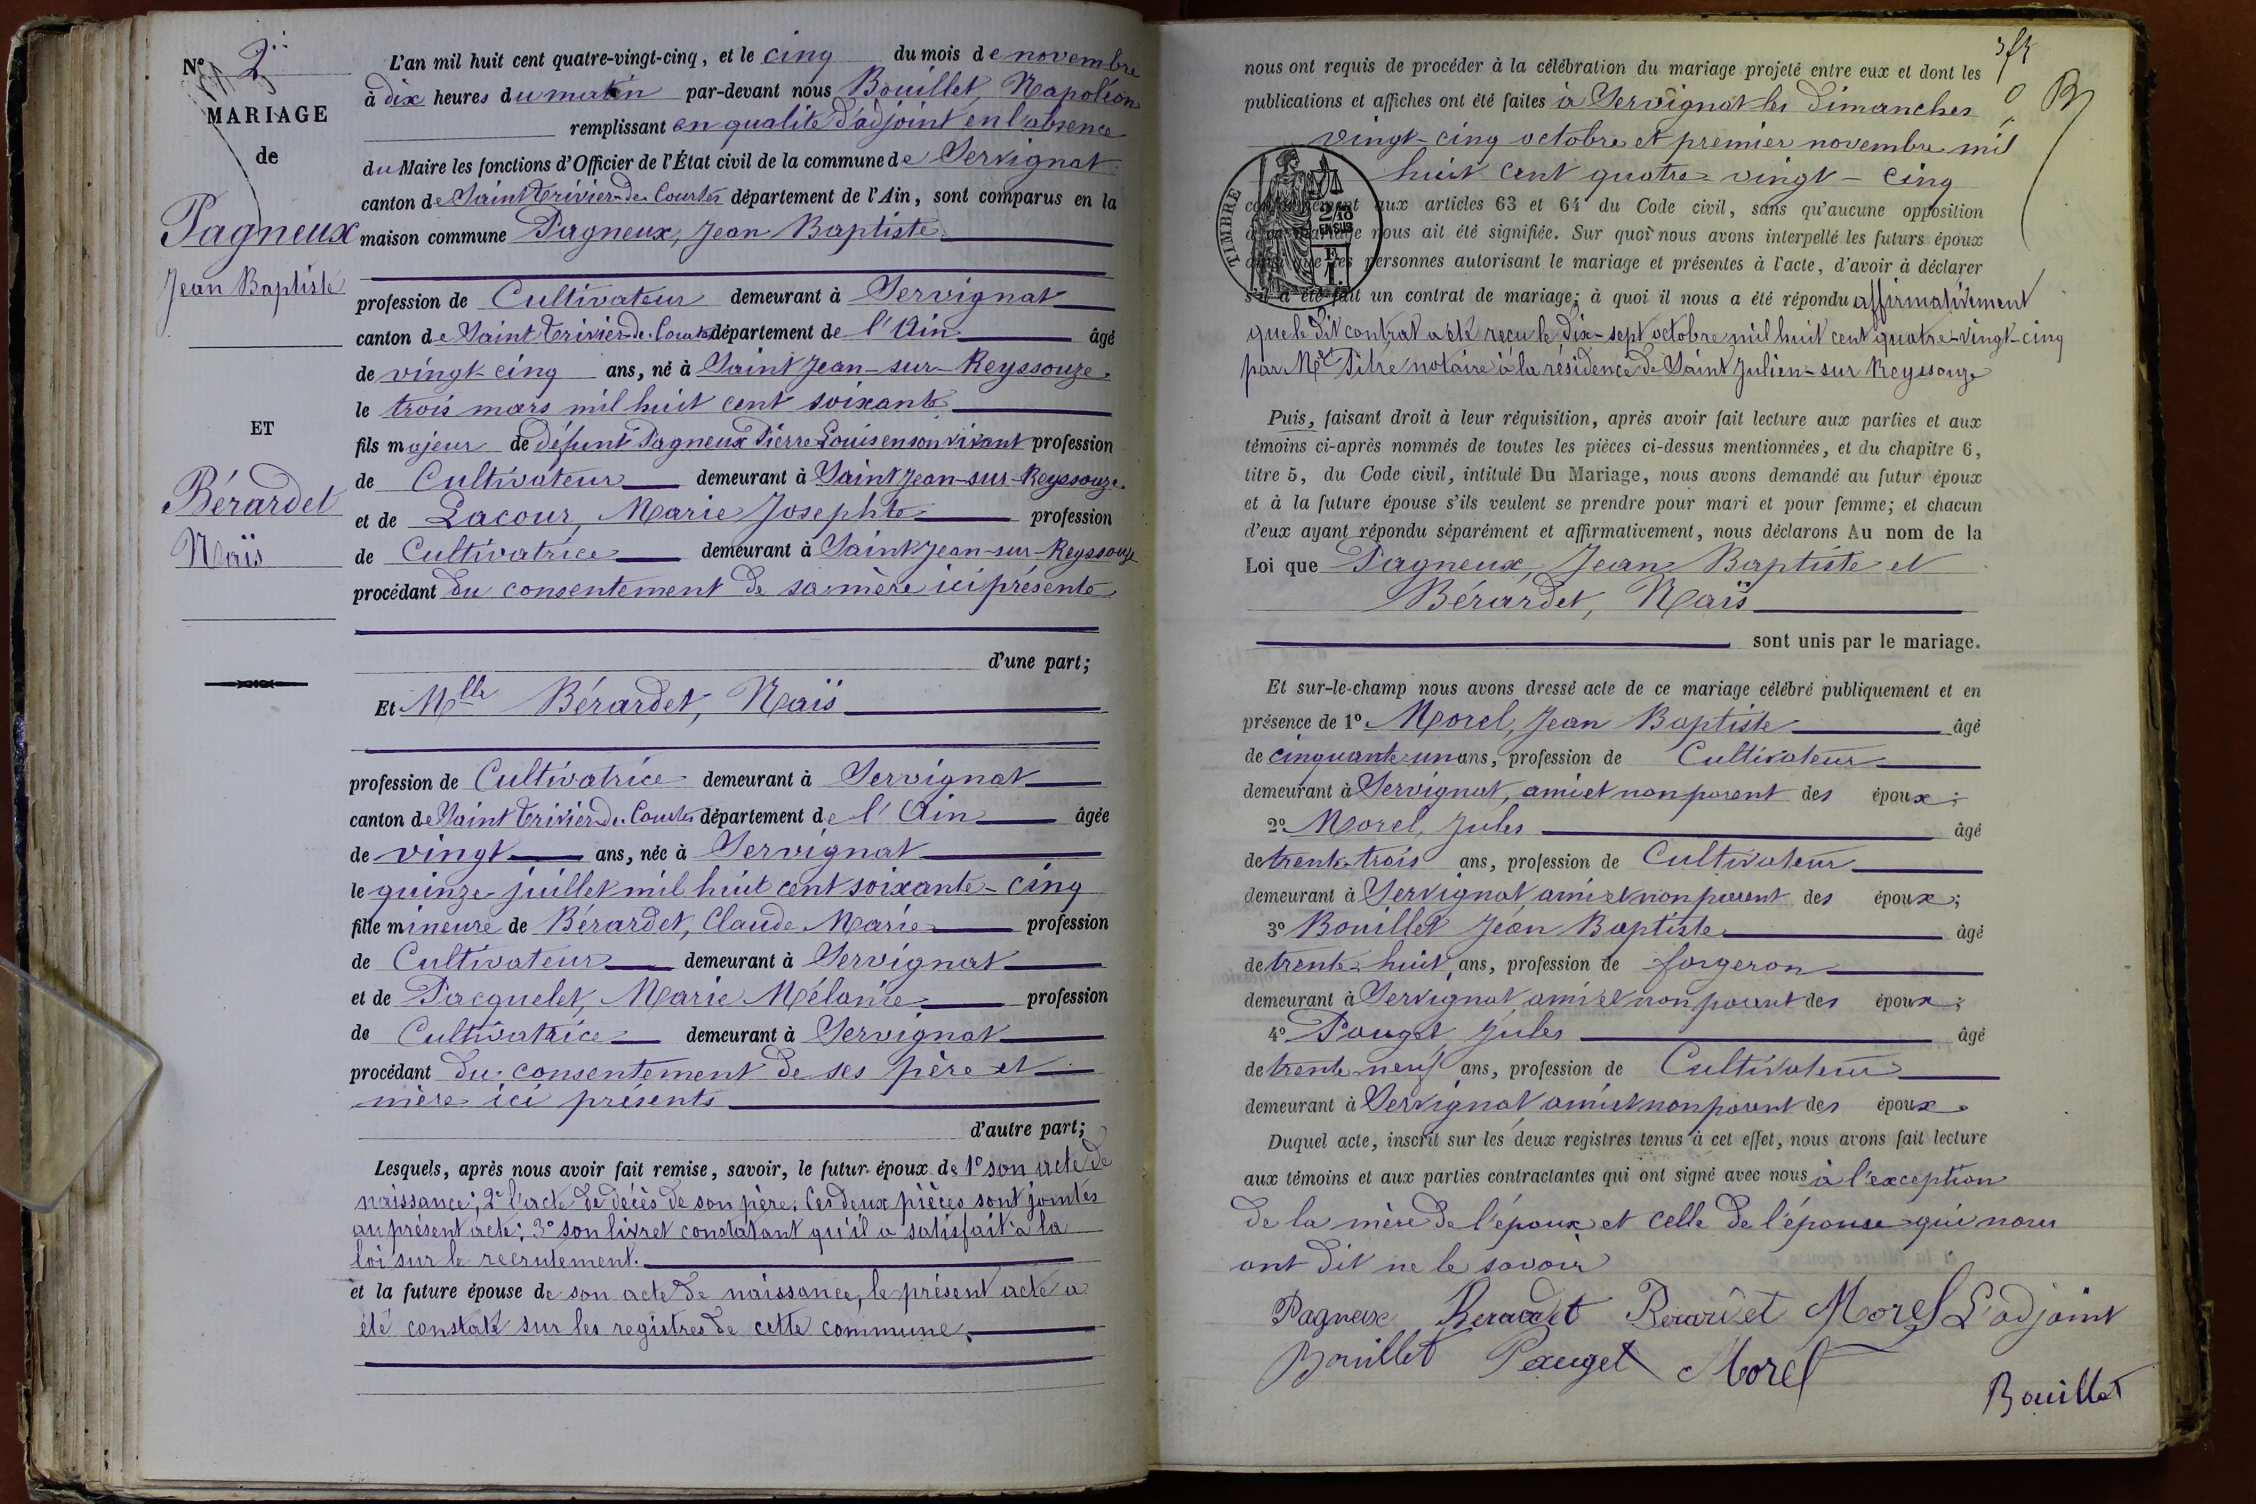 N° 2
MARIAGE
de
Pagneux
Jean Baptiste
ET
Bérardet
Naïs
L'an mil huit cent quatre-vingt-cinq, et le cinq du mois de novembre
à dix heures du matin par-devant nous Bouillet, Napoléon
remplissant en qualité d'adjoint en l'absence
du Maire les fonctions d'Officier de l'État civil de la commune de Servignat
canton de Saint Trivier-de Courtes département de l'Ain, sont comparus en la
maison commune Pagneux, Jean Baptiste
profession de Cultivateur demeurant à Servignat
canton de Saint Trivier-de Courtes département de l'Ain âgé
de vingt-cinq ans, né à Saint Jean-sur-Reyssouze
le trois mars mil huit cent soixante
fils majeur de défunt Pagneux Pierre Louis en son vivant profession
de Cultivateur demeurant à Saint Jean-sur-Reyssouze
et de Lacour, Marie Josephte profession
de Cultivatrice demeurant à Saint Jean-sur-Reyssouze
procédant du consentement de sa mère ici présente
d'une part;
Et Mlle Bérardet, Naïs
profession de Cultivatrice demeurant à Servignat
canton de Saint Trivier-de Courtes département de l'Ain âgée
de vingt ans, née à Servignat
le quinze juillet mil huit cent soixante-cinq
fille mineure de Bérardet, Claude Marie profession
de Cultivateur demeurant à Servignat
et de Pacquelet, Marie Mélanie profession
de Cultivatrice demeurant à Servignat
procédant du consentement de ses père et
mère ici présents
d'autre part;
Lesquels, après nous avoir fait remise, savoir, le futur époux de 1° son acte de
naissance; 2° l'acte de décès de son père. Ces deux pièces sont jointes
au présent acte; 3° son livret constatant qu'il a satisfait à la
loi sur le recrutement.
et la future épouse de son acte de naissance, le présent acte a
été constaté sur les registres de cette commune.
nous ont requis de procéder à la célébration du mariage projeté entre eux et dont les
publications et affiches ont été faites à Servignat les dimanches
vingt-cinq octobre et premier novembre mil
huit cent quatre-vingt-cinq
TIMBRE
2/10
EN SUS
conformément aux articles 63 et 64 du Code civil, sans qu'aucune opposition
à ce mariage nous ait été signifiée. Sur quoi nous avons interpellé les futurs époux
ainsi que les personnes autorisant le mariage et présentes à l'acte, d'avoir à déclarer
s'il a été fait un contrat de mariage; à quoi il nous a été répondu affirmativement
que le dit contrat a été reçu le dix-sept octobre mil huit cent quatre-vingt-cinq
par notaire à la résidence de Saint Julien-sur Reyssouze
Puis, faisant droit à leur réquisition, après avoir fait lecture aux parties et aux
témoins ci-après nommés de toutes les pièces ci-dessus mentionnées, et du chapitre 6,
titre 5, du Code civil, intitulé Du Mariage, nous avons demandé au futur époux
et à la future épouse s'ils veulent se prendre pour mari et pour femme; et chacun
d'eux ayant répondu séparément et affirmativement, nous déclarons Au nom de la
Loi que Pagneux, Jean Baptiste et
Bérardet, Naïs
sont unis par le mariage.
Et sur-le-champ nous avons dressé acte de ce mariage célébré publiquement et en
présence de 1° Morel, Jean Baptiste âgé
de cinquante-un ans, profession de Cultivateur
demeurant à Servignat, ami et non parent des époux;
2° Morel, Jules âgé
de trente-trois ans, profession de Cultivateur
demeurant à Servignat ami et non parent des époux;
3° Bouillet Jean Baptiste âgé
de trente-huit ans, profession de forgeron
demeurant à Servignat, ami et non parent des époux;
4° Pauget Jules âgé
de trente neuf ans, profession de Cultivateur
demeurant à Servignat ami et non parent des époux.
Duquel acte, inscrit sur les deux registres tenus à cet effet, nous avons fait lecture
aux témoins et aux parties contractantes qui ont signé avec nous à l'exception
de la mère de l'époux et celle de l'épouse qui nous
ont dit ne le savoir
Pagneux Berardet Berardet Morel L'adjoint
Bouillet Pauget Morel
Bouillet